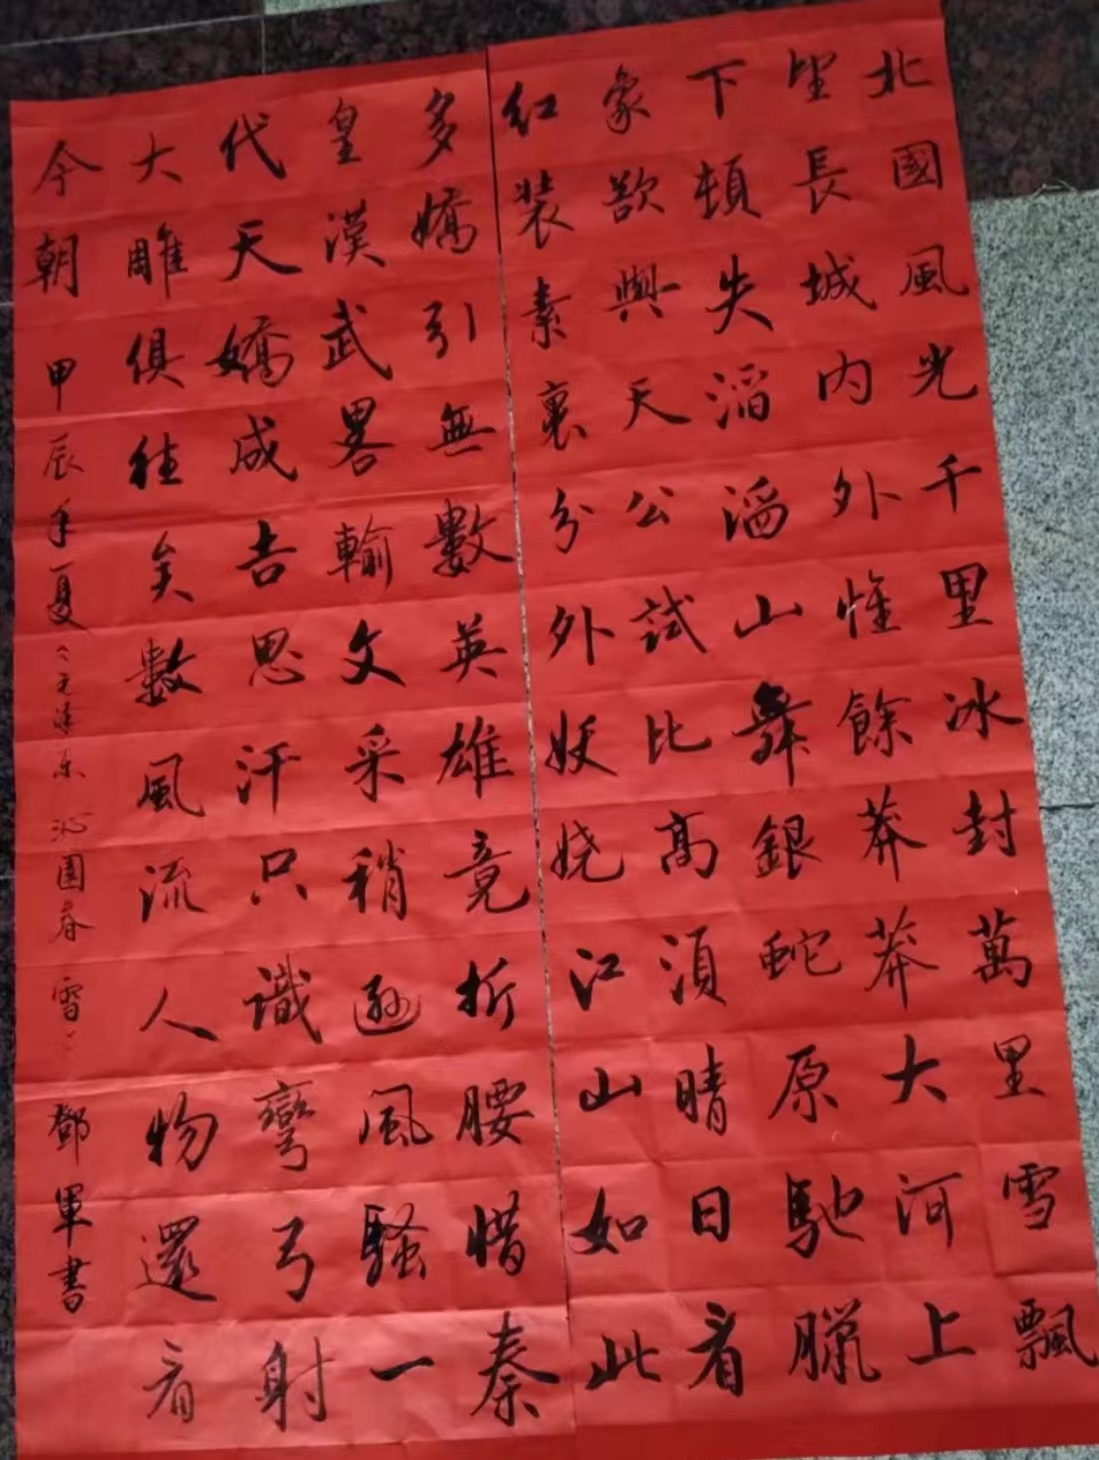 北國風光千里冰封萬里雪飄
望長城內外惟餘莽莽大河上
下頓失滔滔山舞銀蛇原馳臘
象欲與天公試比高須晴日看
红装素裹分外妖娆江山如此
多嬌引無數英雄竟折腰惜秦
皇漢武畧輸文采稍遜風騷一
代天嬌成吉思汗只識彎弓射
大雕俱往矣數風流人物還看
今朝 甲辰年夏《毛泽东 沁園春 雪》 鄧軍書